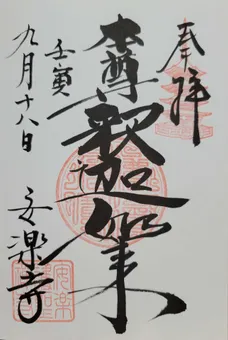 奉拝
本尊
釈迦如来
壬寅
九月十八日
安楽寺